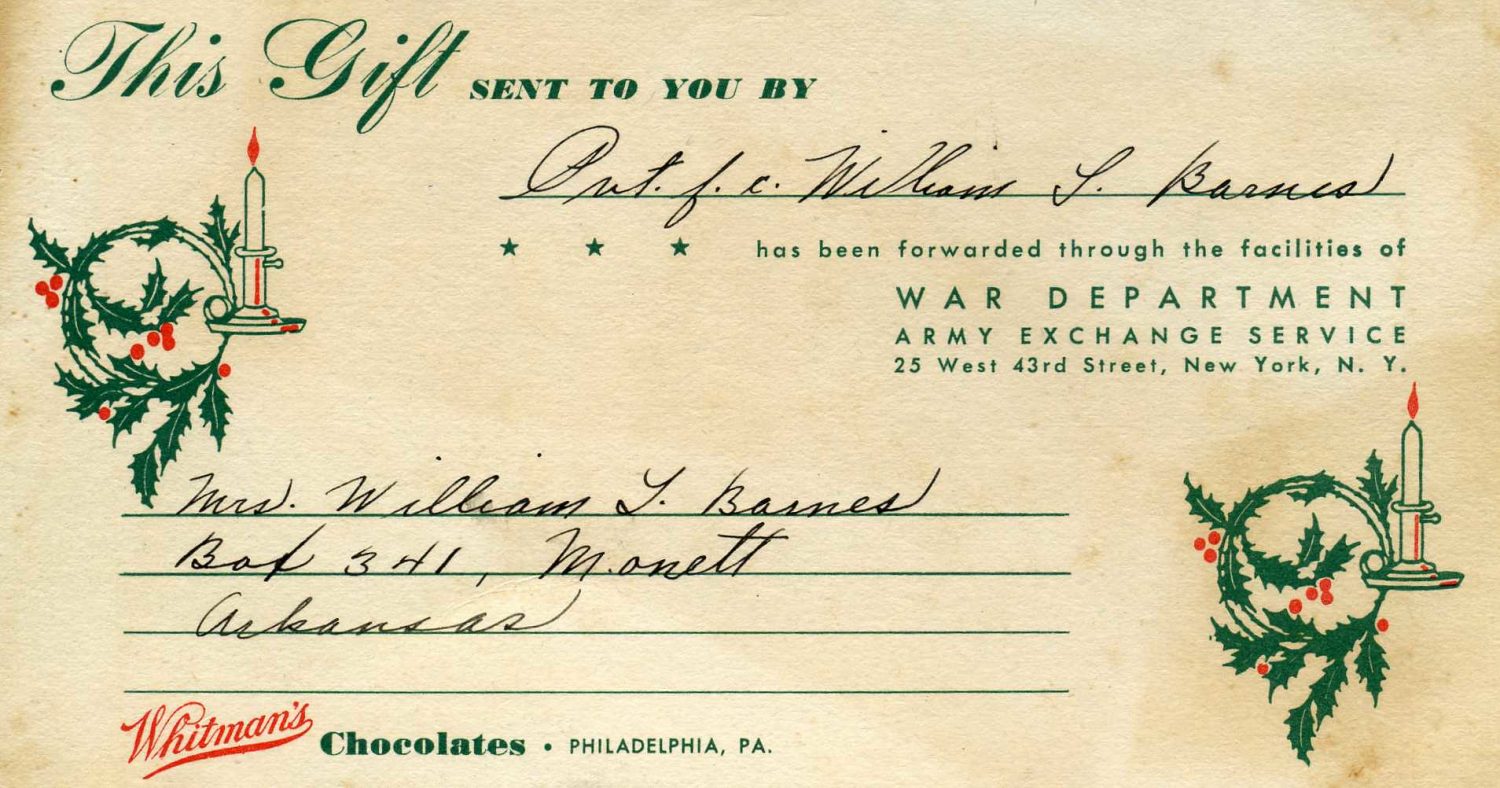 This Gift SENT TO YOU BY
Pvt. f. c. William L. Barnes
★ ★ ★ has been forwarded through the facilities of
WAR DEPARTMENT
ARMY EXCHANGE SERVICE
25 West 43rd Street, New York, N. Y.
Mrs. William L. Barnes
Box 341, Monett
Arkansas
Whitman's Chocolates • PHILADELPHIA, PA.